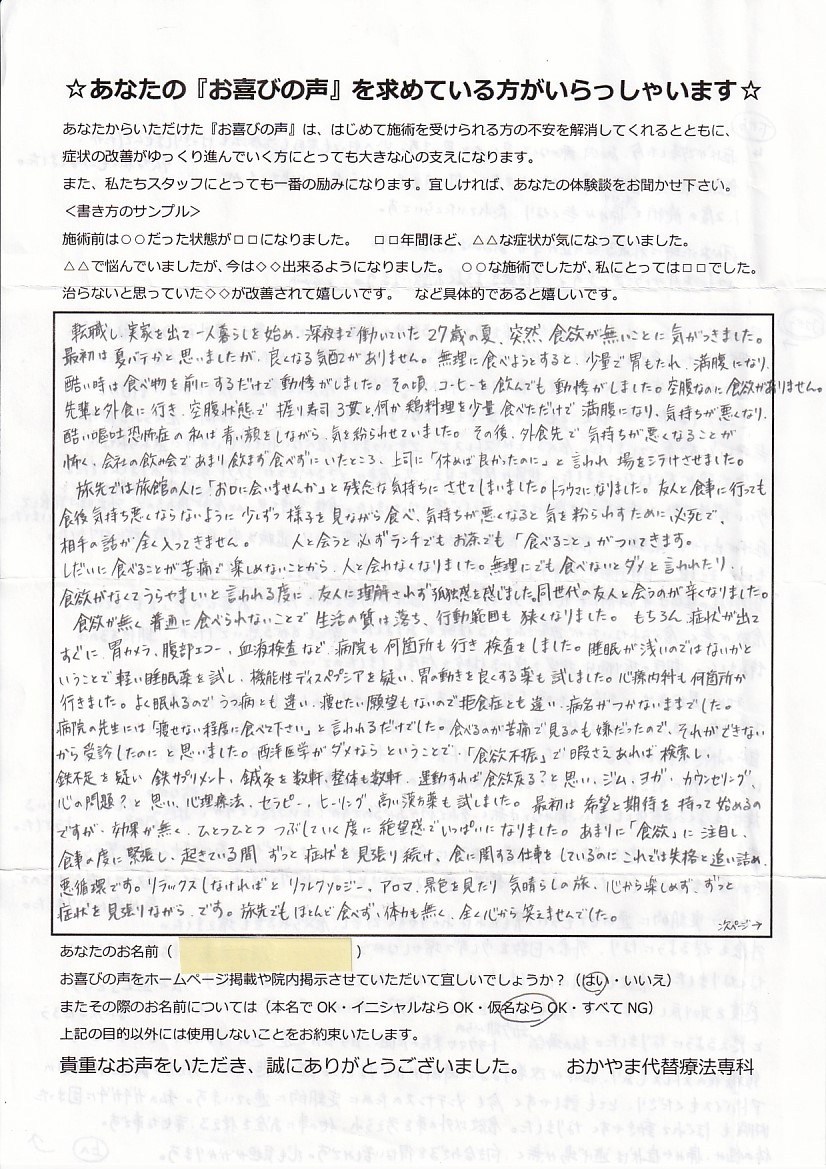 ☆あなたの『お喜びの声』を求めている方がいらっしゃいます☆
あなたからいただけた『お喜びの声』は、はじめて施術を受けられる方の不安を解消してくれるとともに、
症状の改善がゆっくり進んでいく方にとっても大きな心の支えになります。
また、私たちスタッフにとっても一番の励みになります。宜しければ、あなたの体験談をお聞かせ下さい。
＜書き方のサンプル＞
施術前は○○だった状態が□□になりました。　□□年間ほど、△△な症状が気になっていました。
△△で悩んでいましたが、今は◇◇出来るようになりました。　○○な施術でしたが、私にとっては□□でした。
治らないと思っていた◇◇が改善されて嬉しいです。　など具体的であると嬉しいです。
転職し、実家を出て一人暮らしを始め、深夜まで働いていた27歳の夏、突然、食欲が無いことに気がつきました。
最初は夏バテかと思いましたが、良くなる気配がありません。無理に食べようとすると、少量で胃もたれ、満腹になり、
酷い時は食べ物を前にするだけで動悸がしました。その頃、コーヒーを飲んでも動悸がしました。空腹なのに食欲がありません。
先輩と外食に行き、空腹状態で握り寿司3貫と何か鶏料理を少量食べただけで満腹になり、気持ちが悪くなり、
酷い嘔吐恐怖症の私は青い顔をしながら、気を紛らわせていました。その後、外食先で気持ちが悪くなることが
怖く、会社の飲み会であまり飲まず食べずにいたところ、上司に「休めば良かったのに」と言われ場をシラけさせました。
旅先では旅館の人に「お口に会いませんか」と残念な気持ちにさせてしまいました。トラウマになりました。友人と食事に行っても
食後気持ち悪くならないように少しずつ様子を見ながら食べ、気持ちが悪くなると気を紛らわすために必死で、
相手の話が全く入ってきません。　人と会うと必ずランチでもお茶でも「食べること」がついてきます。
しだいに食べることが苦痛で楽しめないことから、人と会わなくなりました。無理にでも食べないとダメと言われたり、
食欲がなくてうらやましいと言われる度に、友人に理解されず孤独感を感じました。同世代の友人と会うのが辛くなりました。
食欲が無く普通に食べられないことで生活の質は落ち、行動範囲も狭くなりました。もちろん、症状が出て
すぐに、胃カメラ、腹部エコー、血液検査など、病院も何箇所も行き検査をしました。睡眠が浅いのではないかと
いうことで軽い睡眠薬を試し、機能性ディスペプシアを疑い、胃の動きを良くする薬も試しました。心療内科も何箇所か
行きました。よく眠れるのでうつ病とも違い、痩せたい願望もないので拒食症とも違い、病名がつかないままでした。
病院の先生には「痩せない程度に食べて下さい」と言われるだけでした。食べるのが苦痛で見るのも嫌だったので、それができない
から受診したのにと思いました。西洋医学がダメならということで、「食欲不振」で暇さえあれば検索し、
鉄不足を疑い鉄サプリメント、鍼灸を数軒、整体も数軒、運動すれば食欲戻る?と思い、ジム、ヨガ、カウンセリング、
心の問題?と思い、心理療法、セラピー、ヒーリング、高い漢方薬も試しました。最初は希望と期待を持って始めるの
ですが、効果が無く、ひとつひとつつぶしていく度に絶望感でいっぱいになりました。あまりに「食欲」に注目し、
食事の度に緊張し、起きている間ずっと症状を見張り続け、食に関する仕事をしているのにこれでは失格と追い詰め、
悪循環です。リラックスしなければとリフレクソロジー、アロマ、景色を見たり気晴らしの旅、心から楽しめず、ずっと
症状を見張りながら、です。旅先でもほとんど食べず、体力も無く、全く心から笑えませんでした。
次ページ→
あなたのお名前（　　　）
お喜びの声をホームページ掲載や院内掲示させていただいて宜しいでしょうか？（はい・いいえ）
またその際のお名前については（本名でOK・イニシャルならOK・仮名ならOK・すべてNG）
上記の目的以外には使用しないことをお約束いたします。
貴重なお声をいただき、誠にありがとうございました。　　おかやま代替療法専科